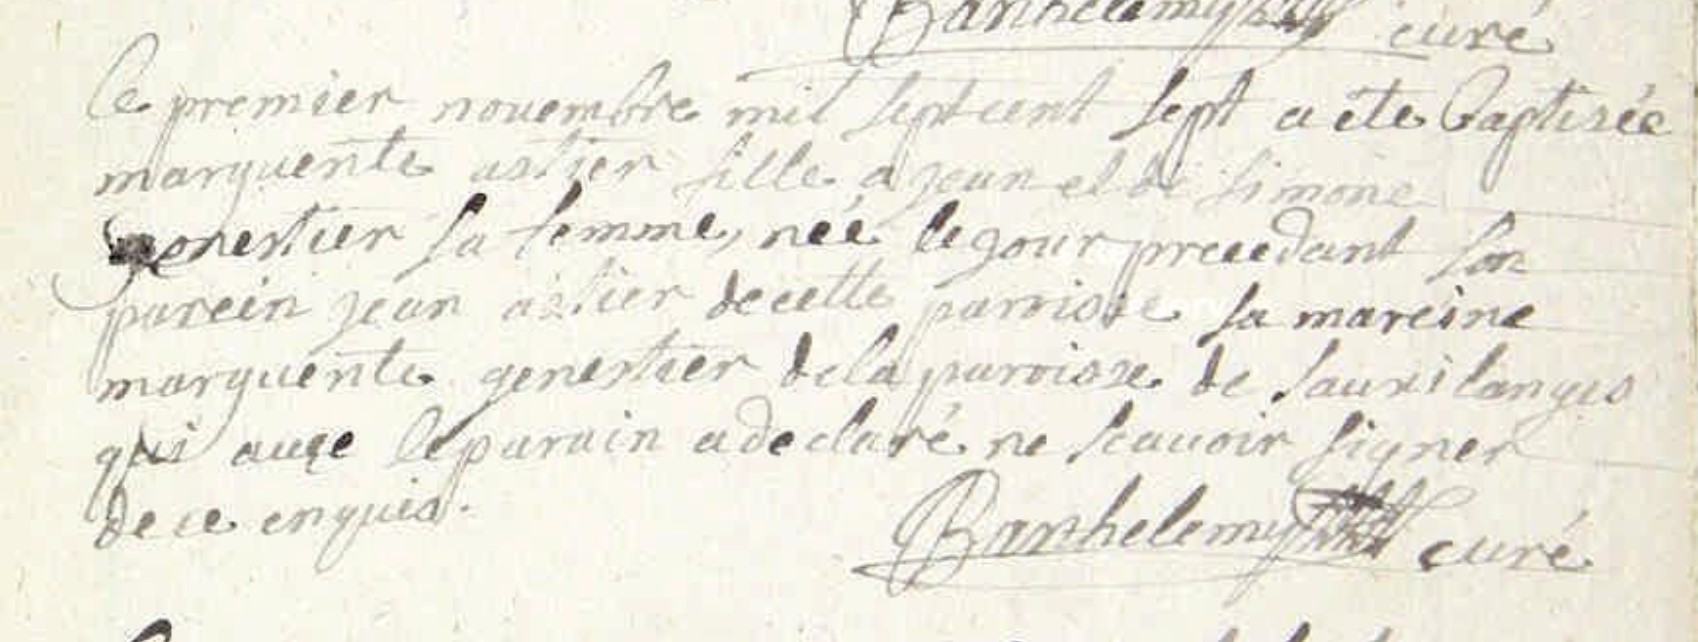 Barthelemy curé
Ce premier novembre mil sept cent sept a ete baptisée
marguerite astier fille a jean et de simone
genestier sa femme, née le jour precedant son
parein jean astier de cette parroisse sa mareine
marguerite genestier de la paroisse de sauxilanges
qui avec le parain a declaré ne scavoir signer
de ce enquis.
Barthelemy curé